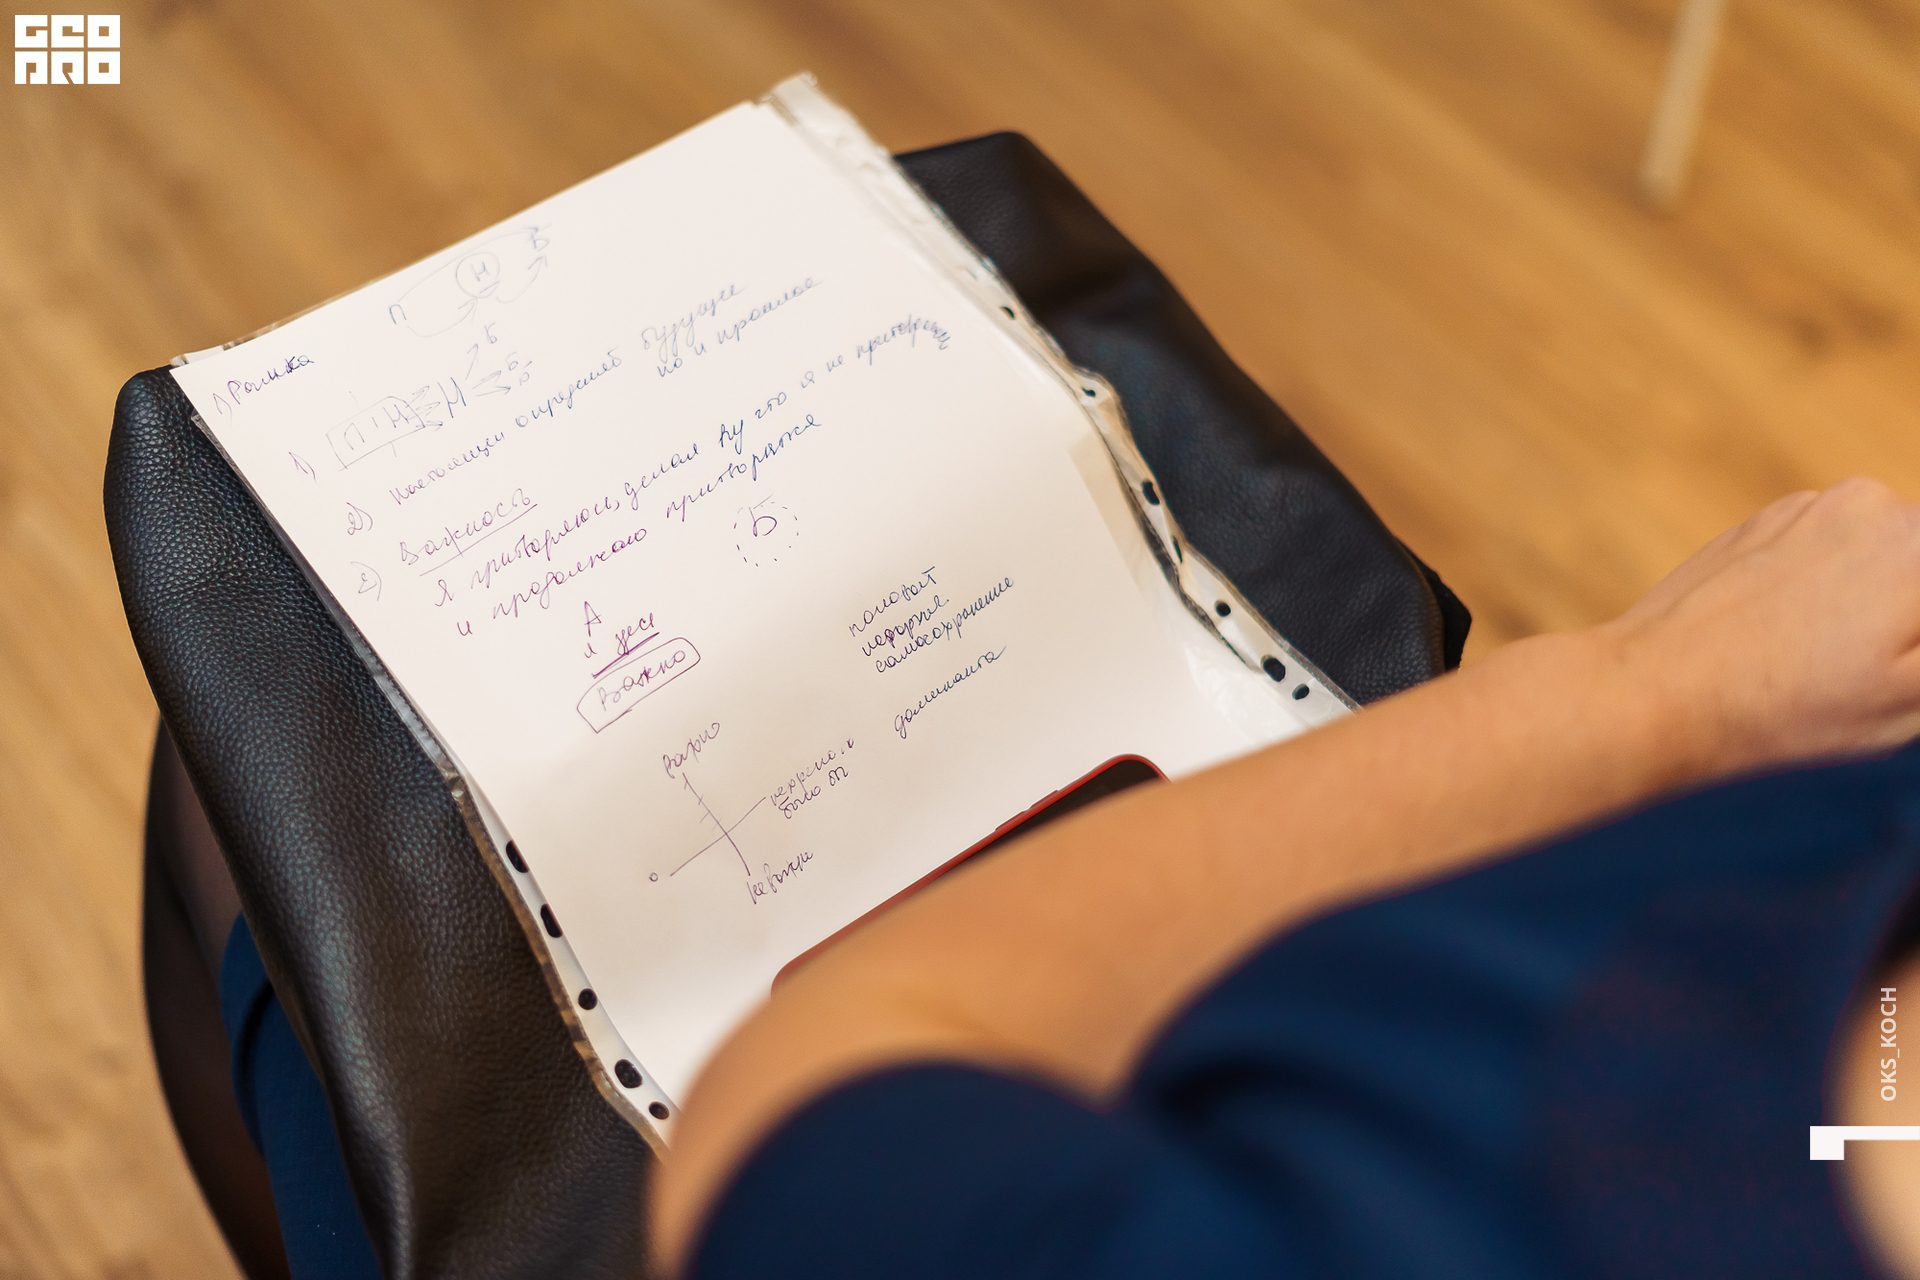 GEO
PRO
П Н Б
1) Рамка
1) П Н Н Б Б Б
2) Настоящее определяет будущее
но и прошлое
2) Важность
Я притворяюсь, делая вид что я не притворяюсь
и продолжаю притворяться
Б
А
я
Важно
половой
самосохранение
доминанта
важно
было бы
0
неважно
OKS_KOCH